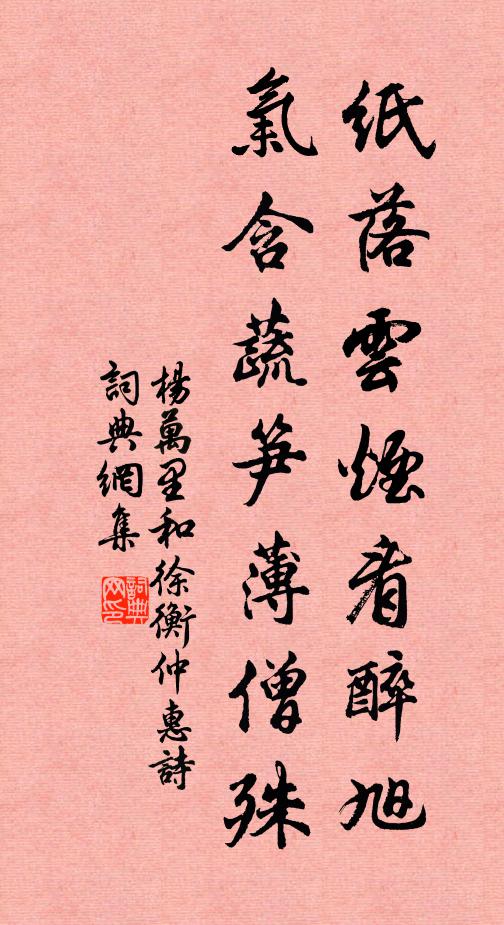 紙落雲煙看醉旭
氣含蔬笋薄僧殊
楊萬里和徐衡仲惠詩
詞典網集
詞典網印